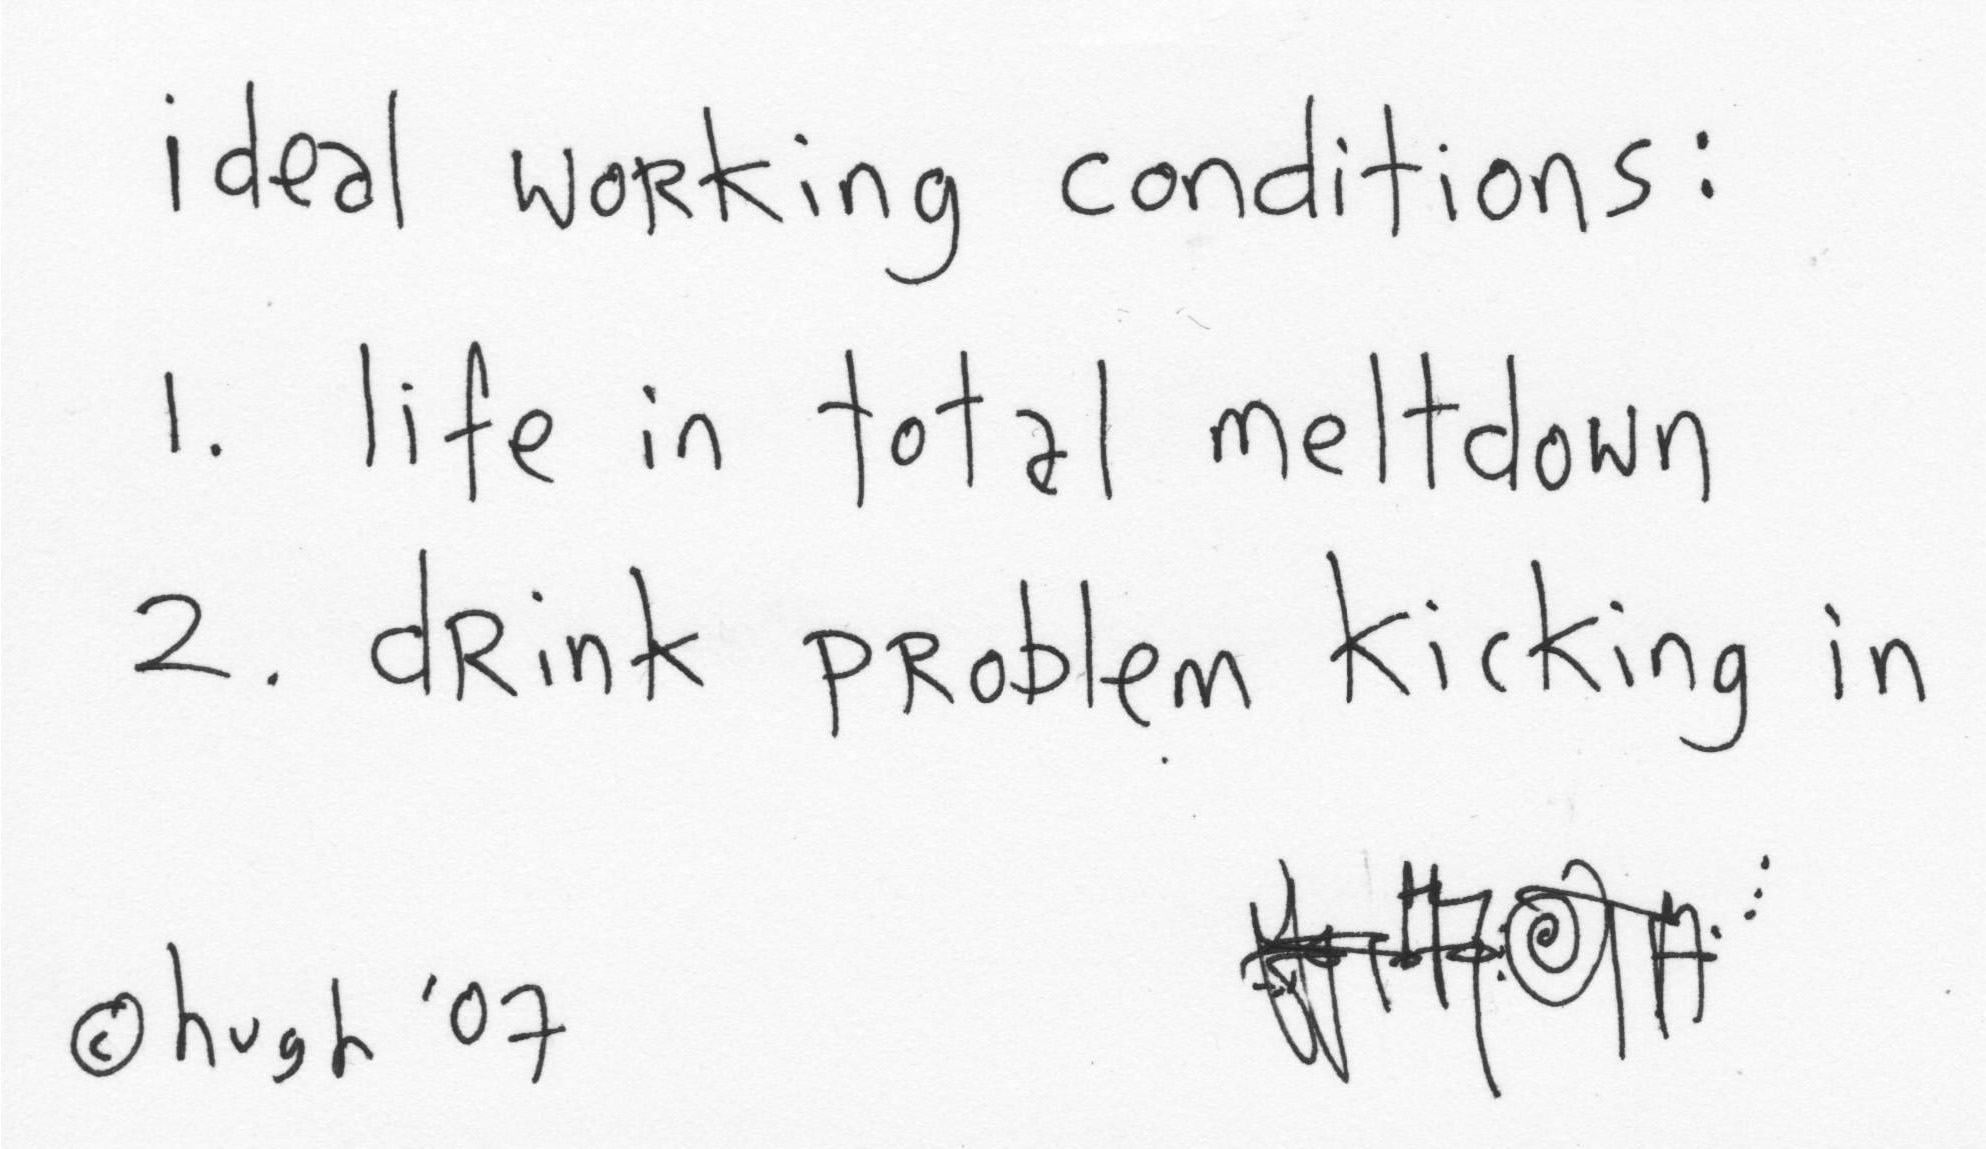 ideal working conditions:
1. life in total meltdown
2. drink problem kicking in
©hugh '07